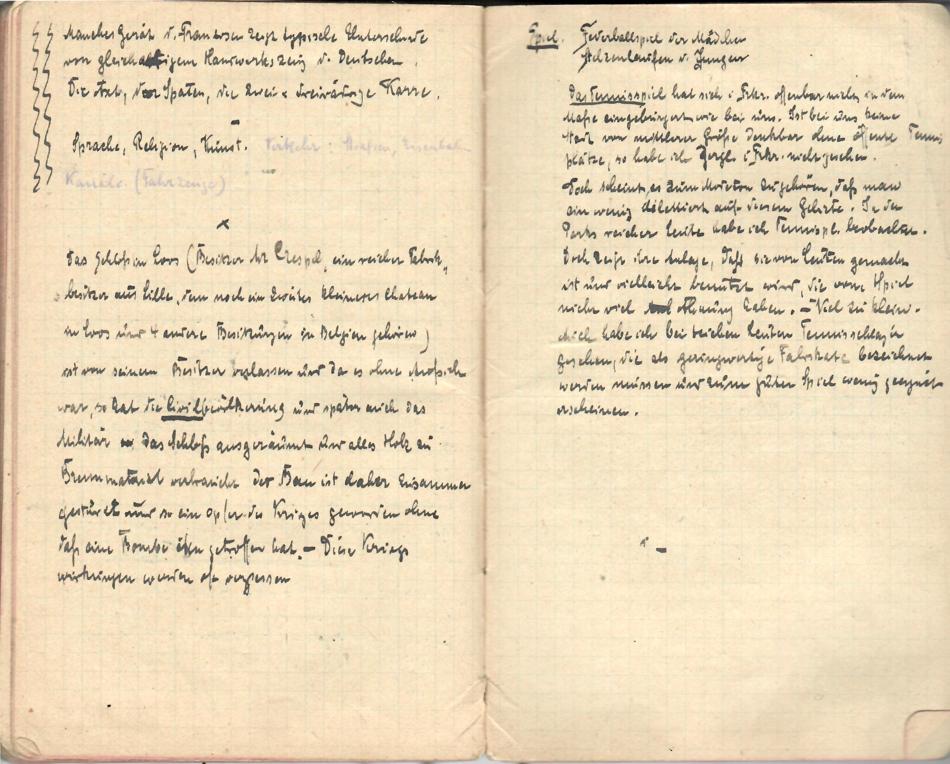 Manches Gerät d. Franzosen zeigt typische Unterschiede
von gleichartigem Handwerkszeug d. Deutschen.
Die Axt, der Spaten, die zwei u. dreirädrige Karre.
Sprache, Religion, Kunst. Verkehr: Straßen, Eisenbahn
Kanäle. (Fahrzeuge)
x
Das Schloß in Loos (Besitzer Mr Crespel, ein reicher Fabrik-
besitzer aus Lille, dem noch ein zweites kleineres Chateau
in Loos und 4 andere Besitzungen in Belgien gehören)
ist von seinem Besitzer verlassen und da es ohne Aufsicht
war, so hat die Civilbevölkerung und später auch das
Militär das Schloß ausgeräumt und alles Holz zu
Brennmaterial verbraucht. Der Bau ist daher zusammen
gestürzt und so ein Opfer des Krieges geworden ohne
daß eine Bombe ihn getroffen hat. – Diese Kriegs
wirkungen werden oft vergessen
Spiel. Federballspiel der Mädchen
Stelzenlaufen d. Jungen
Das Tennisspiel hat sich i. Frkr. offenbar nicht in dem
Maße eingebürgert wie bei uns. Ist bei uns keine
Stadt von mittlerer Größe denkbar ohne öffentl. Tennis
plätze, so habe ich dergl. i. Frkr. nicht gesehen.
Doch scheint es zum Modeton zu gehören, daß man
ein wenig dilettiert auf diesem Gebiete. In den
Parks reicher Leute habe ich Tennispl. beobachtet.
Doch zeigt ihre Anlage, daß sie von Leuten gemacht
ist und vielleicht benutzt wird, die vom Spiel
nicht viel Ahnung haben. – Viel zu klein.
Auch habe ich bei reichen Leuten Tennisschläger
gesehen, die als geringwertige Fabrikate bezeichnet
werden müssen und zum guten Spiel wenig geeignet
erscheinen.